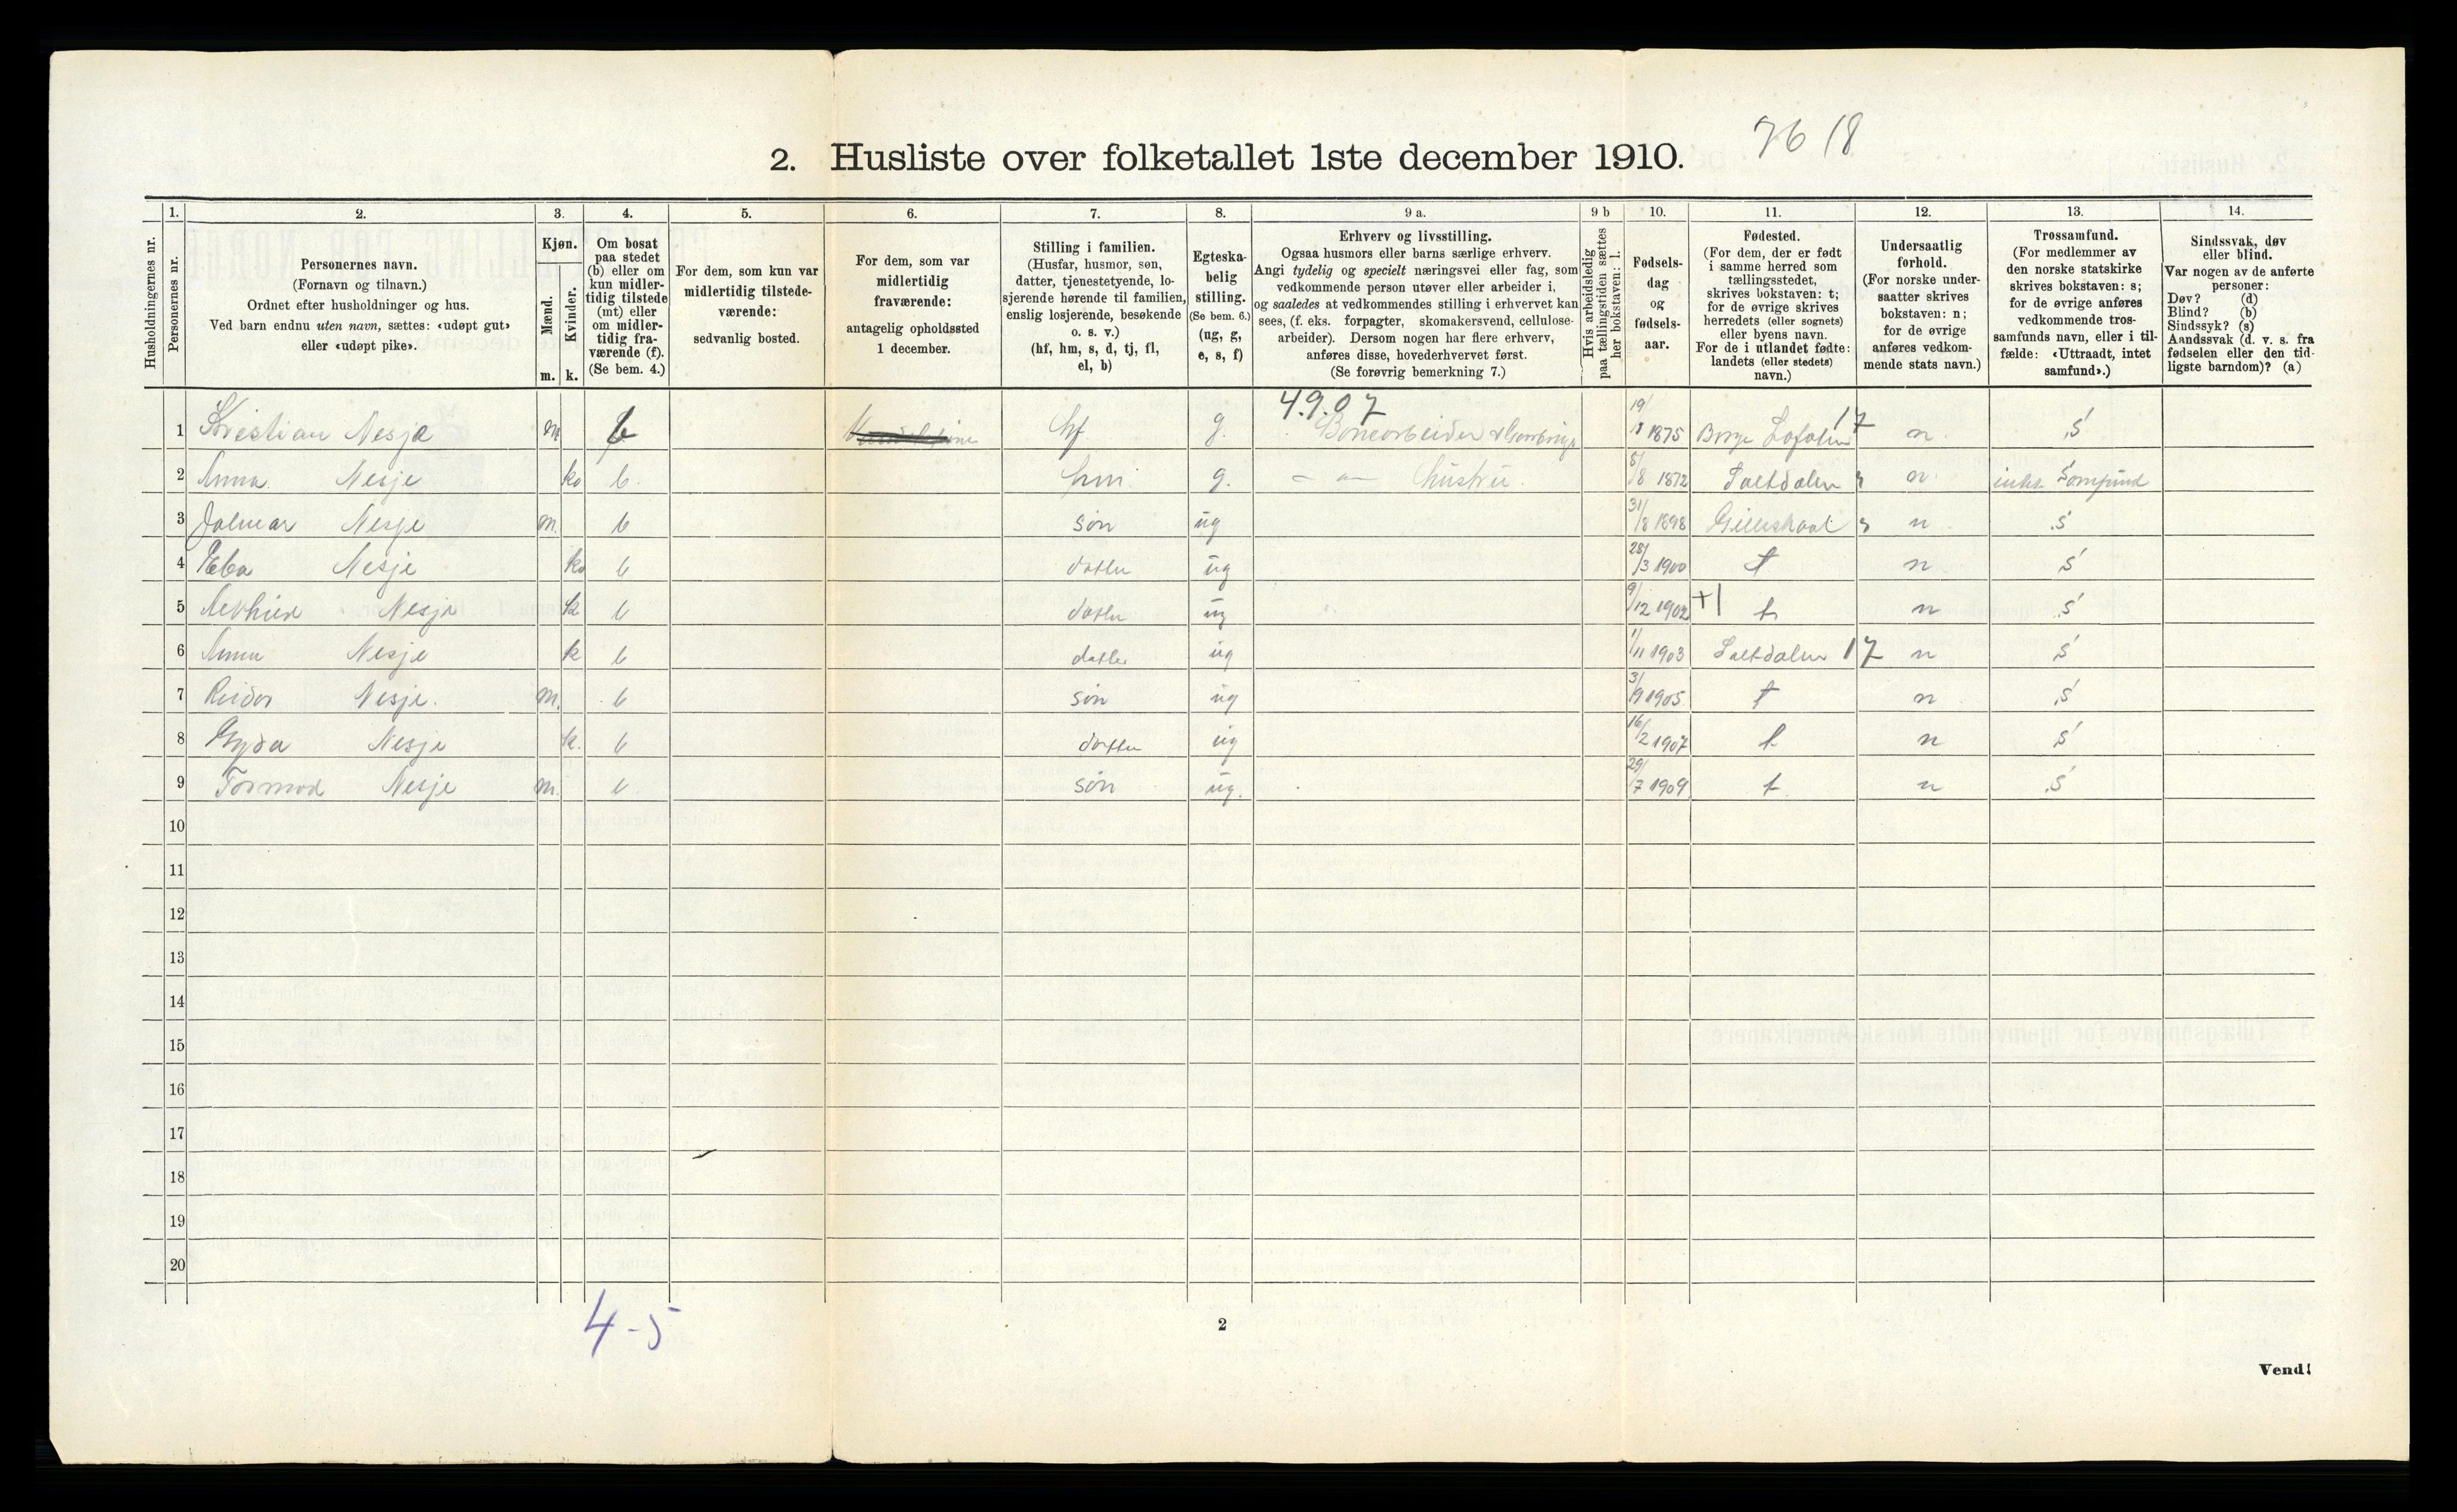 76 18
2. Husliste over folketallet 1ste december 1910.
Husholdningernes nr.
1. 2. 3. 4. 5. 6. 7. 8. 9 a. 9 b 10. 11. 12. 13. 14.
Personernes nr.
Personernes navn.
(Fornavn og tilnavn.)
Ordnet efter husholdninger og hus.
Ved barn endnu uten navn, sættes: «udøpt gut»
eller «udøpt pike».
Kjøn.
Mænd.
Kvinder.
m. k.
Om bosat
paa stedet
(b) eller om
kun midler-
tidig tilstede
(mt) eller
om midler-
tidig fra-
værende (f).
(Se bem. 4.)
For dem, som kun var
midlertidig tilstede-
værende:
sedvanlig bosted.
For dem, som var
midlertidig
fraværende:
antagelig opholdssted
1 december.
Stilling i familien.
(Husfar, husmor, søn,
datter, tjenestetyende, lo-
sjerende hørende til familien,
enslig losjerende, besøkende
o. s. v.)
(hf, hm, s, d, tj, fl,
el, b)
Egteska-
belig
stilling.
(Se bem. 6.)
(ug, g,
e, s, f)
Erhverv og livsstilling.
Ogsaa husmors eller barns særlige erhverv.
Angi tydelig og specielt næringsvei eller fag, som
vedkommende person utøver eller arbeider i,
og saaledes at vedkommendes stilling i erhvervet kan
sees, (f. eks. forpagter, skomakersvend, cellulose-
arbeider). Dersom nogen har flere erhverv,
anføres disse, hovederhvervet først.
(Se forøvrig bemerkning 7.)
Hvis arbeidsledig
paa tællingstiden sættes
her bokstaven: l.
Fødsels-
dag
og
fødsels-
aar.
Fødested.
(For dem, der er født
i samme herred som
tællingsstedet,
skrives bokstaven: t;
for de øvrige skrives
herredets (eller sognets)
eller byens navn.
For de i utlandet fødte:
landets (eller stedets)
navn.)
Undersaatlig
forhold.
(For norske under-
saatter skrives
bokstaven: n;
for de øvrige
anføres vedkom-
mende stats navn.)
Trossamfund.
(For medlemmer av
den norske statskirke
skrives bokstaven: s;
for de øvrige anføres
vedkommende tros-
samfunds navn, eller i til-
fælde: «Uttraadt, intet
samfund».)
Sindssvak, døv
eller blind.
Var nogen av de anførte
personer:
Døv? (d)
Blind? (b)
Sindssyk? (s)
Aandssvak (d. v. s. fra
fødselen eller den tid-
ligste barndom)? (a)
4.9.07
1 Kristian Nesje m b hf g. 19/ 1875 Borge Lofoten 17 n s
2 Anna Nesje k b. hm g. hustru. 5/8 1872 Saltdalen n inkt Somfund
3 Jalmar Nesje m. b søn ug 31/8 1898 Gilleskaal n s
4 Eba Nesje k b datter ug 28/3 1900 t n s
5 Nesje k b datter ug 9/12 1902 +1 t n s
6 Anna Nesje k b datter ug 1/11 1903 Saltdalen 17 n s
7 Reidor Nesje. m. b søn ug 3/9 1905 t n s
8 Gyda Nesje k. b datter ug 16/2 1907 t n s
9 Tormod Nesje m. b søn ug. 29/7 1909 t n s
10
11
12
13
14
15
16
17
18
19
20
4-5
2
Vend!